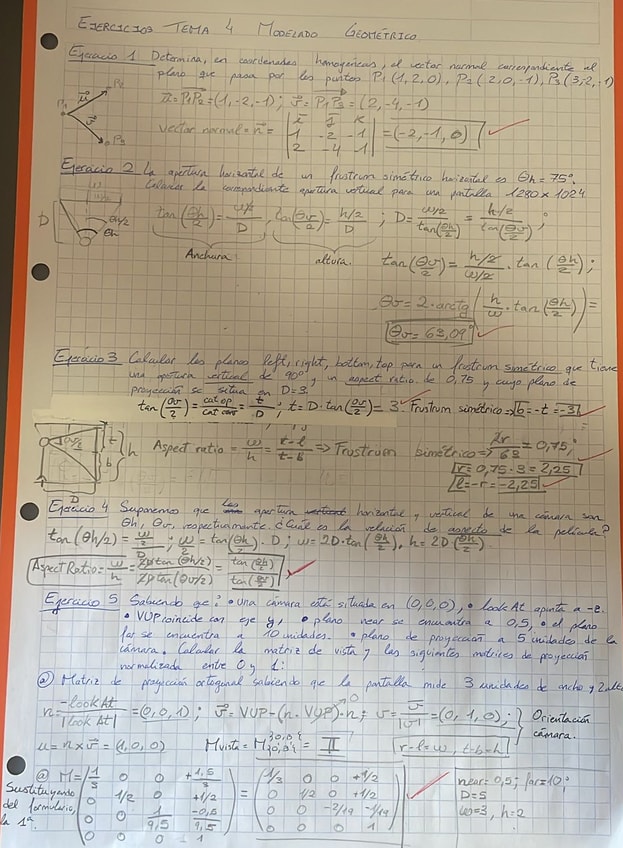 EJERCICIOS TEMA 4 MODELADO GEOMÉTRICO
Ejercicio 1 Determina, en coordenadas homogéneas, el vector normal correspondiente al
plano que pasa por los puntos P₁(1,2,0), P₂(2,0,-1), P₃(3,-2,-1)
P₁ P₂ P₃ u v
u = P₁P₂ = (1,-2,-1); v = P₁P₃ = (2,-4,-1)
vector normal = n = | i j k | 1 -2 -1 | 2 -4 -1 | = (-2,-1,0)
Ejercicio 2 La apertura horizontal de un frustrum simétrico horizontal es θh = 75º.
Calcular la correspondiente apertura vertical para una pantalla 1280 x 1024
D θh/2 θh
tan(θh/2) = (w/2)/D, tan(θv/2) = (h/2)/D ; D = (w/2)/tan(θh/2) = (h/2)/tan(θv/2);
Anchura altura
tan(θv/2) = (h/2)/(w/2) · tan(θh/2);
θv = 2·arctg(h/w · tan(θh/2)) =
θv = 63,09º
Ejercicio 3 Calcular los planos left, right, bottom, top para un frustrum simétrico que tiene
una apertura vertical de 90º y un aspect ratio de 0,75 y cuyo plano de
proyección se situa en D=3.
tan(θv/2) = cat op/cat cont = t/D ; t = D·tan(θv/2) = 3. Frustrum simétrico => b = -t = -3
θv/2 t b h D
Aspect ratio = w/h = (r-l)/(t-b) => Frustrum simétrico => 2r/6 = 0,75;
r = 0,75·3 = 2,25
l = -r = -2,25
Ejercicio 4 Suponemos que apertura horizontal y vertical de una cámara son
θh, θv, respectivamente. ¿Cuál es la relación de aspecto de la película?
tan(θh/2) = (w/2)/D ; w/2 = tan(θh/2)·D; w = 2D·tan(θh/2), h = 2D(θv/2).
Aspect Ratio = w/h = 2D tan(θh/2)/2D tan(θv/2) = tan(θh/2)/tan(θv/2)
Ejercicio 5 Sabiendo que: • Una cámara está situada en (0,0,0), • lookAt apunta a -z.
• VUP coincide con eje y, • plano near se encuentra a 0,5, • el plano
far se encuentra a 10 unidades. • plano de proyección a 5 unidades de la
cámara. Calcular la matriz de vista y las siguientes matrices de proyección
normalizada entre 0 y 1:
a) Matriz de proyección ortogonal sabiendo que la pantalla mide 3 unidades de ancho y 2 alto
n = -lookAt/|lookAt| = (0,0,1); v = VUP-(n·VUP)·n; v = v/|v| = (0,1,0);
Orientación
cámara.
u = n x v = (1,0,0) Mvista = = I r-l=w, t-b=h
a) M = (1/3 0 0 +1,5/3 = (1/3 0 0 +1/2
0 1/2 0 +1/2 0 1/2 0 +1/2
0 0 1/9,5 -0,5/9,5 0 0 -2/19 -1/19
0 0 0 1) 0 0 0 1)
Sustituyendo
del formulario,
la 1ª.
near=0,5; far=10;
D=5
w=3, h=2